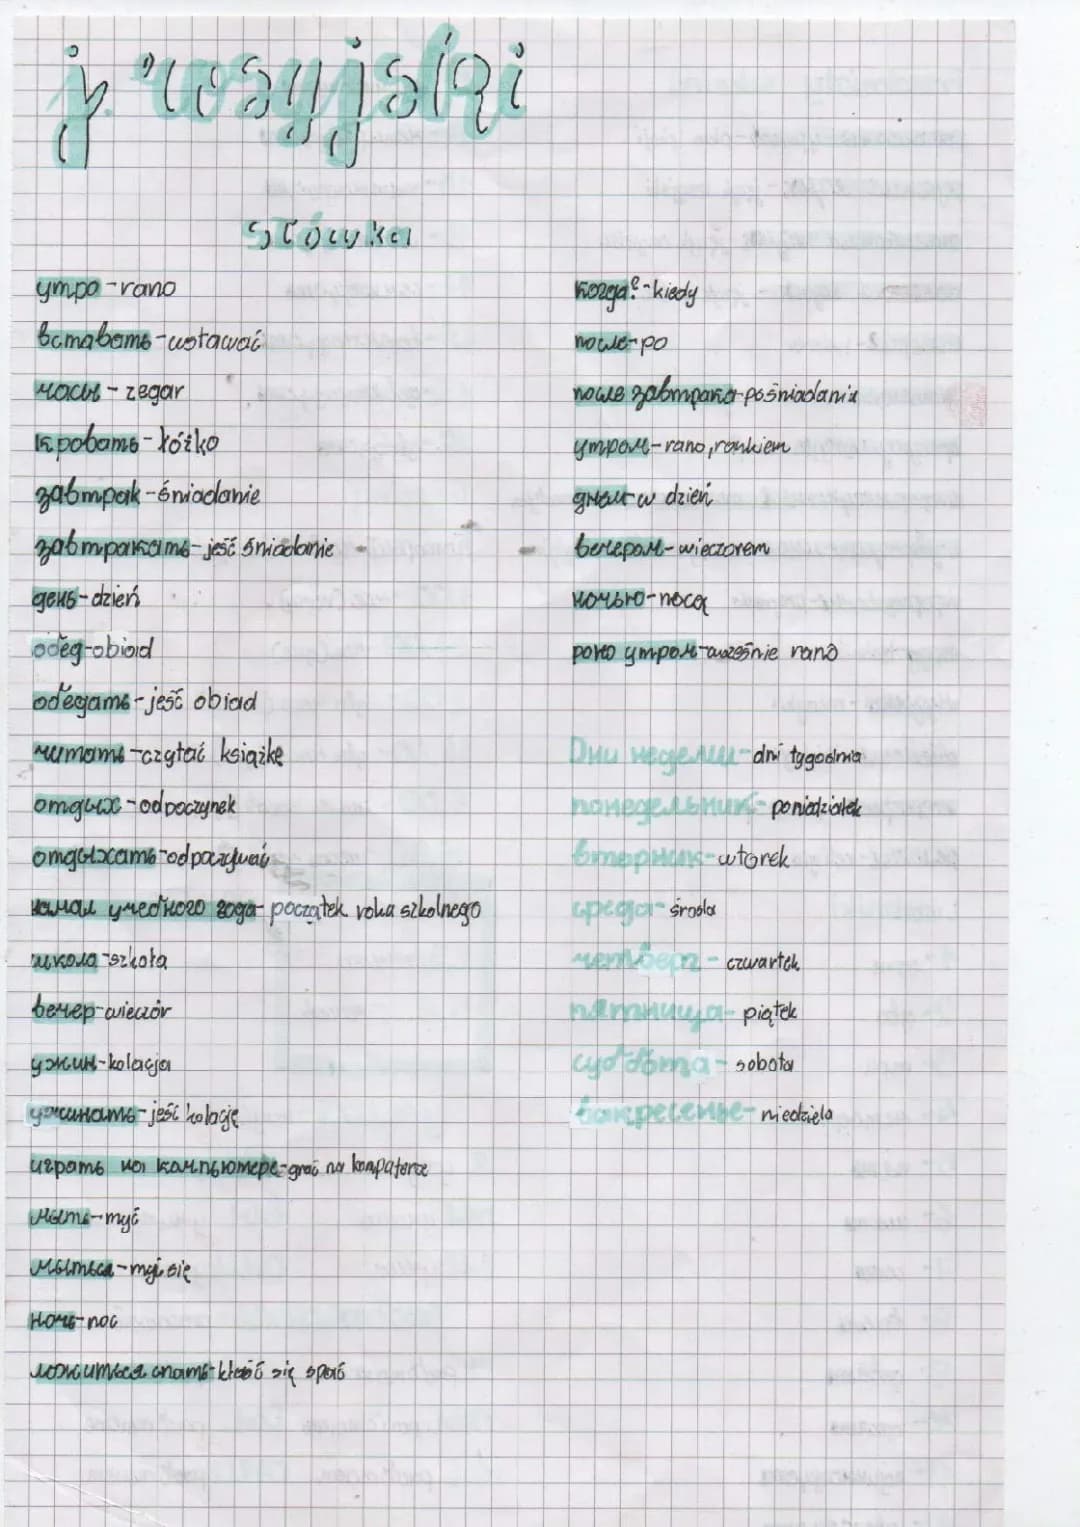 j. rosyjski
słówka
утро - rano
вставать - wstawać
часы - zegar
кровать - łóżko
завтрак - śniadanie
завтракать - jeść śniadanie
день - dzień
обед - obiad
обедать - jeść obiad
читать - czytać książkę
отдых - odpoczynek
отдыхать - odpoczywać
начал учебного года - początek roku szkolnego
школа - szkoła
вечер - wieczór
ужин - kolacja
ужинать - jeść kolację
играть на компьютере - grać na komputerze
мыть - myć
мыться - myć się
ночь - noc
ложиться спать - kłaść się spać
когда? - kiedy
после - po
после завтрака - po śniadaniu
утром - rano, rankiem
днём - w dzień
вечером - wieczorem
ночью - nocą
рано утром - wcześnie rano
Дни недели - dni tygodnia
понедельник - poniedziałek
вторник - wtorek
среда - środa
четверг - czwartek
пятница - piątek
суббота - sobota
васкресенье - niedziela